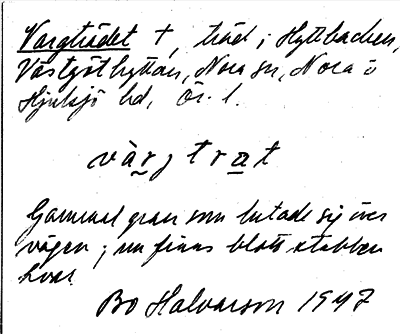 Vargträdet †, träd i Hyttbacken,
Västgöthyttan, Nora sn, Nora o
Hjulsjö hd, Ör. l.
vàrjtrat
Gammal gran som lutade sig över
vägen; nu finns blott stubben
kvar.
Bo Halvarson 1947